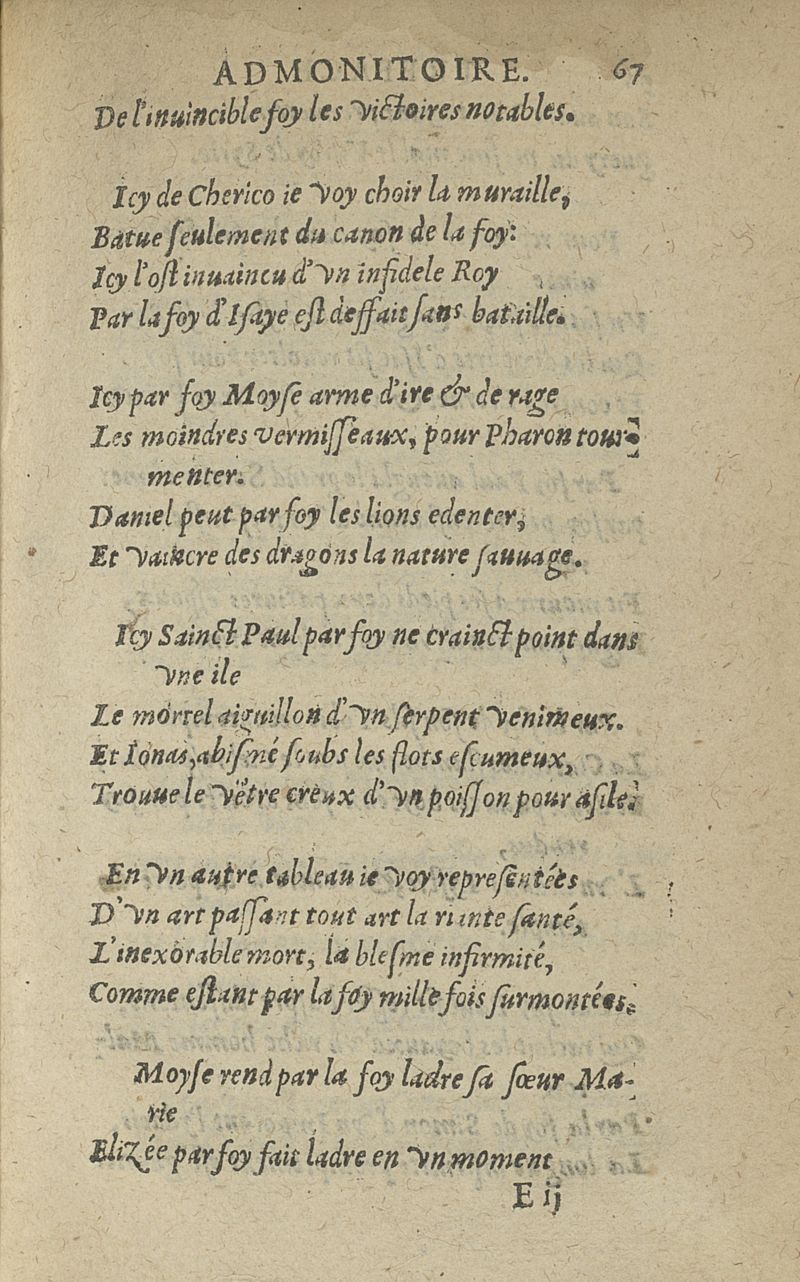 ADMONITOIRE. 67
De l'inuincible foy les victoires notables.
Icy de Cherico ie voy choir la muraille,
Batue ſeulement du canon de la foy:
Icy l'oſt inuaincu d'vn infidele Roy
Par la foy d'Iſaye eſt deffait ſans bataille.
Icy par foy Moyſe arme d'ire & de rage
Les moindres vermiſſeaux, pour Pharon tour-
menter.
Daniel peut par foy les lions edenter,
Et vaincre des dragons la nature ſauuage.
Icy Sainct Paul par foy ne crainct point dans
vne ile
Le mortel aiguillon d'vn ſerpent venimeux.
Et Ionas, abiſmé ſoubs les flots eſcumeux,
Trouue le vẽtre creux d'vn poiſſon pour aſile.
En vn autre tableau ie voy repreſentées
D'vn art paſſant tout art la riante ſanté,
L'inexorable mort, la bleſme infirmité,
Comme eſtant par la foy mille fois ſurmontées.
Moyſe rend par la foy ladre ſa ſœur Ma-
rie
Elizée par foy fait ladre en vn moment
E ij